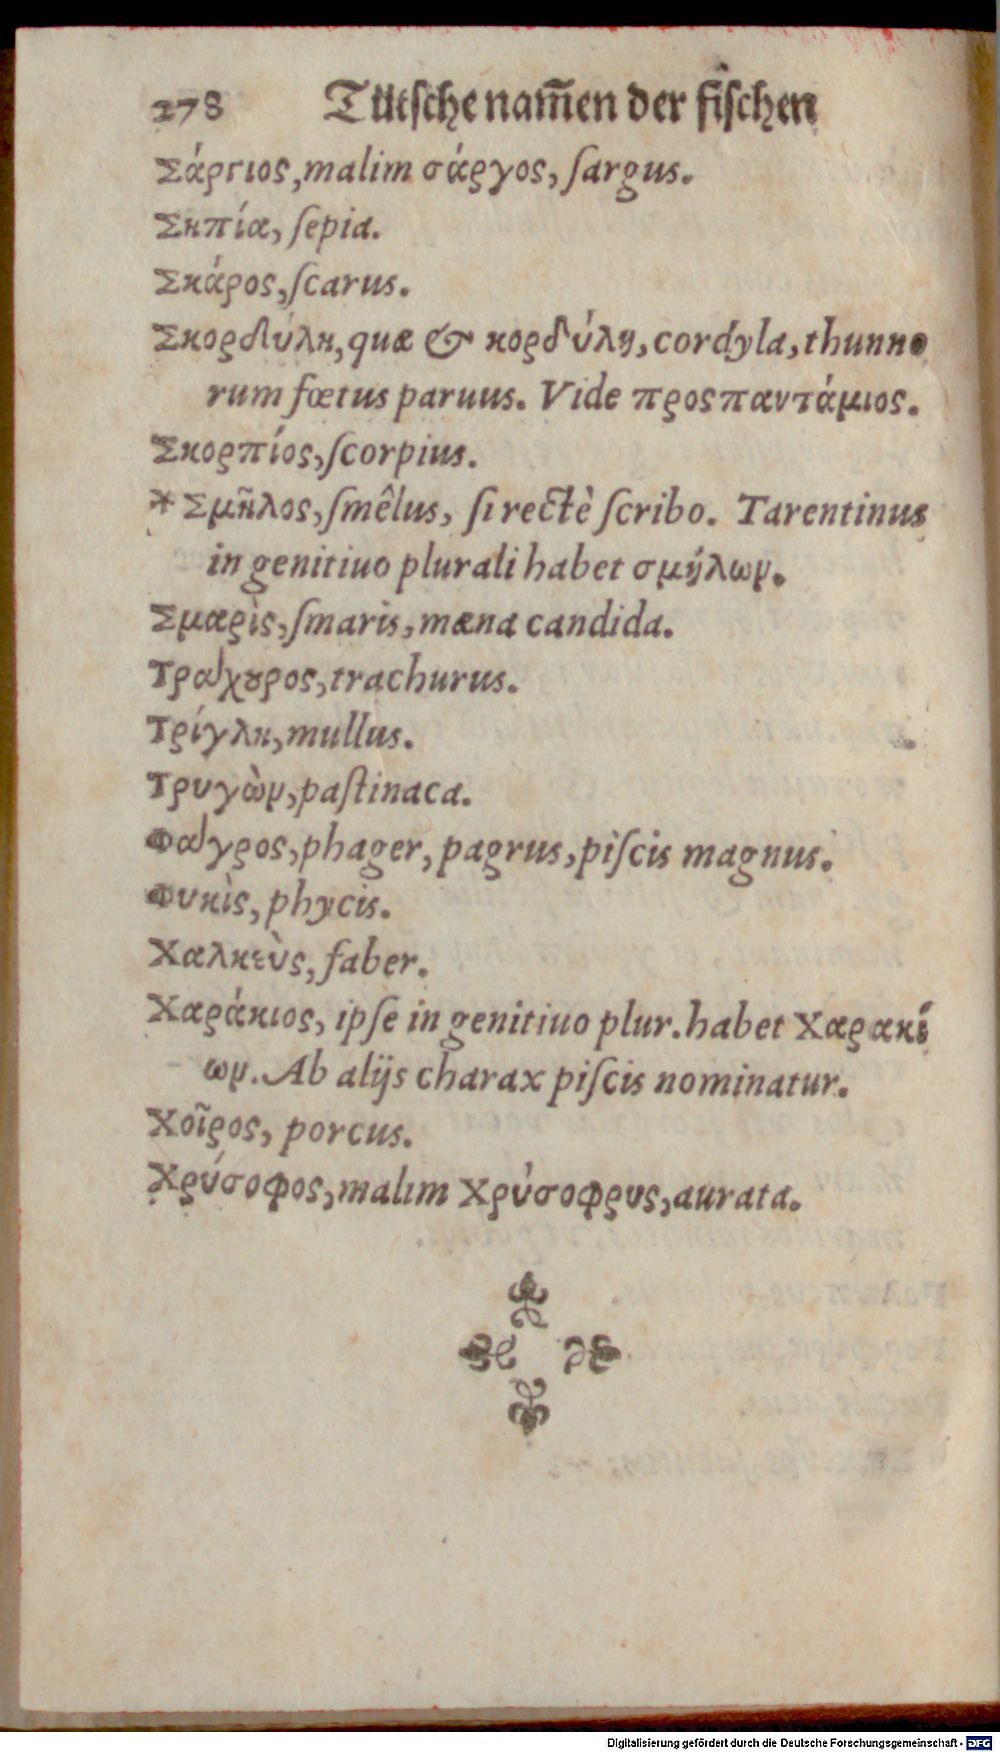 278 Tütsche nam̃en der fischen
Σάργιος, malim σάργος, ſargus.
Σηπία, ſepia.
Σκάρος, ſcarus.
Σκορδύλη, quæ & κορδύλη, cordyla, thunno
rum fœtus paruus. Vide προσπαντάμιος.
Σκορπίος, ſcorpius.
* Σμῆλος, ſmêlus, ſi rectè ſcribo. Tarentinus
in genitiuo plurali habet σμήλων.
Σμαρὶς, ſmaris, mæna candida.
Τράχουρος, trachurus.
Τρίγλη, mullus.
Τρυγὼν, paſtinaca.
Φάγρος, phager, pagrus, piſcis magnus.
Φυκὶς, phycis.
Χαλκεὺς, faber.
Χαράκιος, ipſe in genitiuo plur. habet Χαρακί
ων. Ab alijs charax piſcis nominatur.
Χοῖρος, porcus.
Χρύσοφος, malim Χρύσοφρυς, aurata.
Digitalisierung gefördert durch die Deutsche Forschungsgemeinschaft - DFG